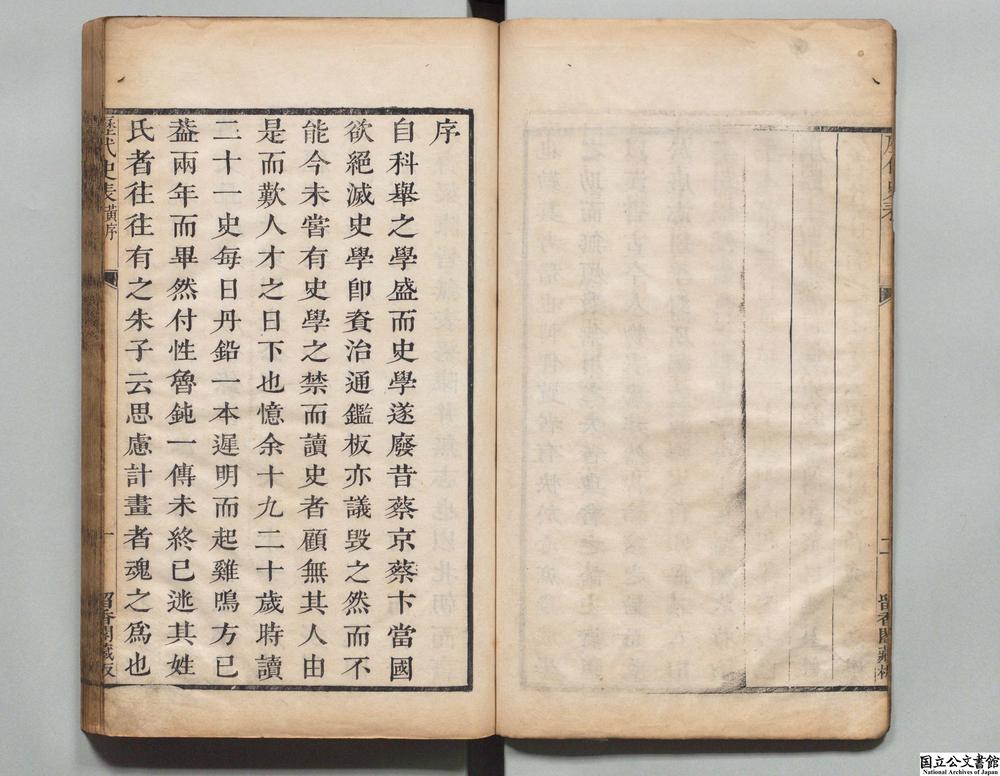 序
自科舉之學盛而史學遂廢昔蔡京蔡卞當國
欲絕滅史學卽資治通鑑板亦議毀之然而不
能今未嘗有史學之禁而讀史者顧無其人由
是而歎人才之日下也憶余十九二十歲時讀
二十一史每日丹鉛一本遲明而起雞鳴方已
葢兩年而畢然付性魯鈍一傳未終已迯其姓
氏者往往有之朱子云思慮計畫者魂之爲也
歷代史表 黃序 一 留香閣藏板
留香閣藏板
国立公文書館
National Archives of Japan